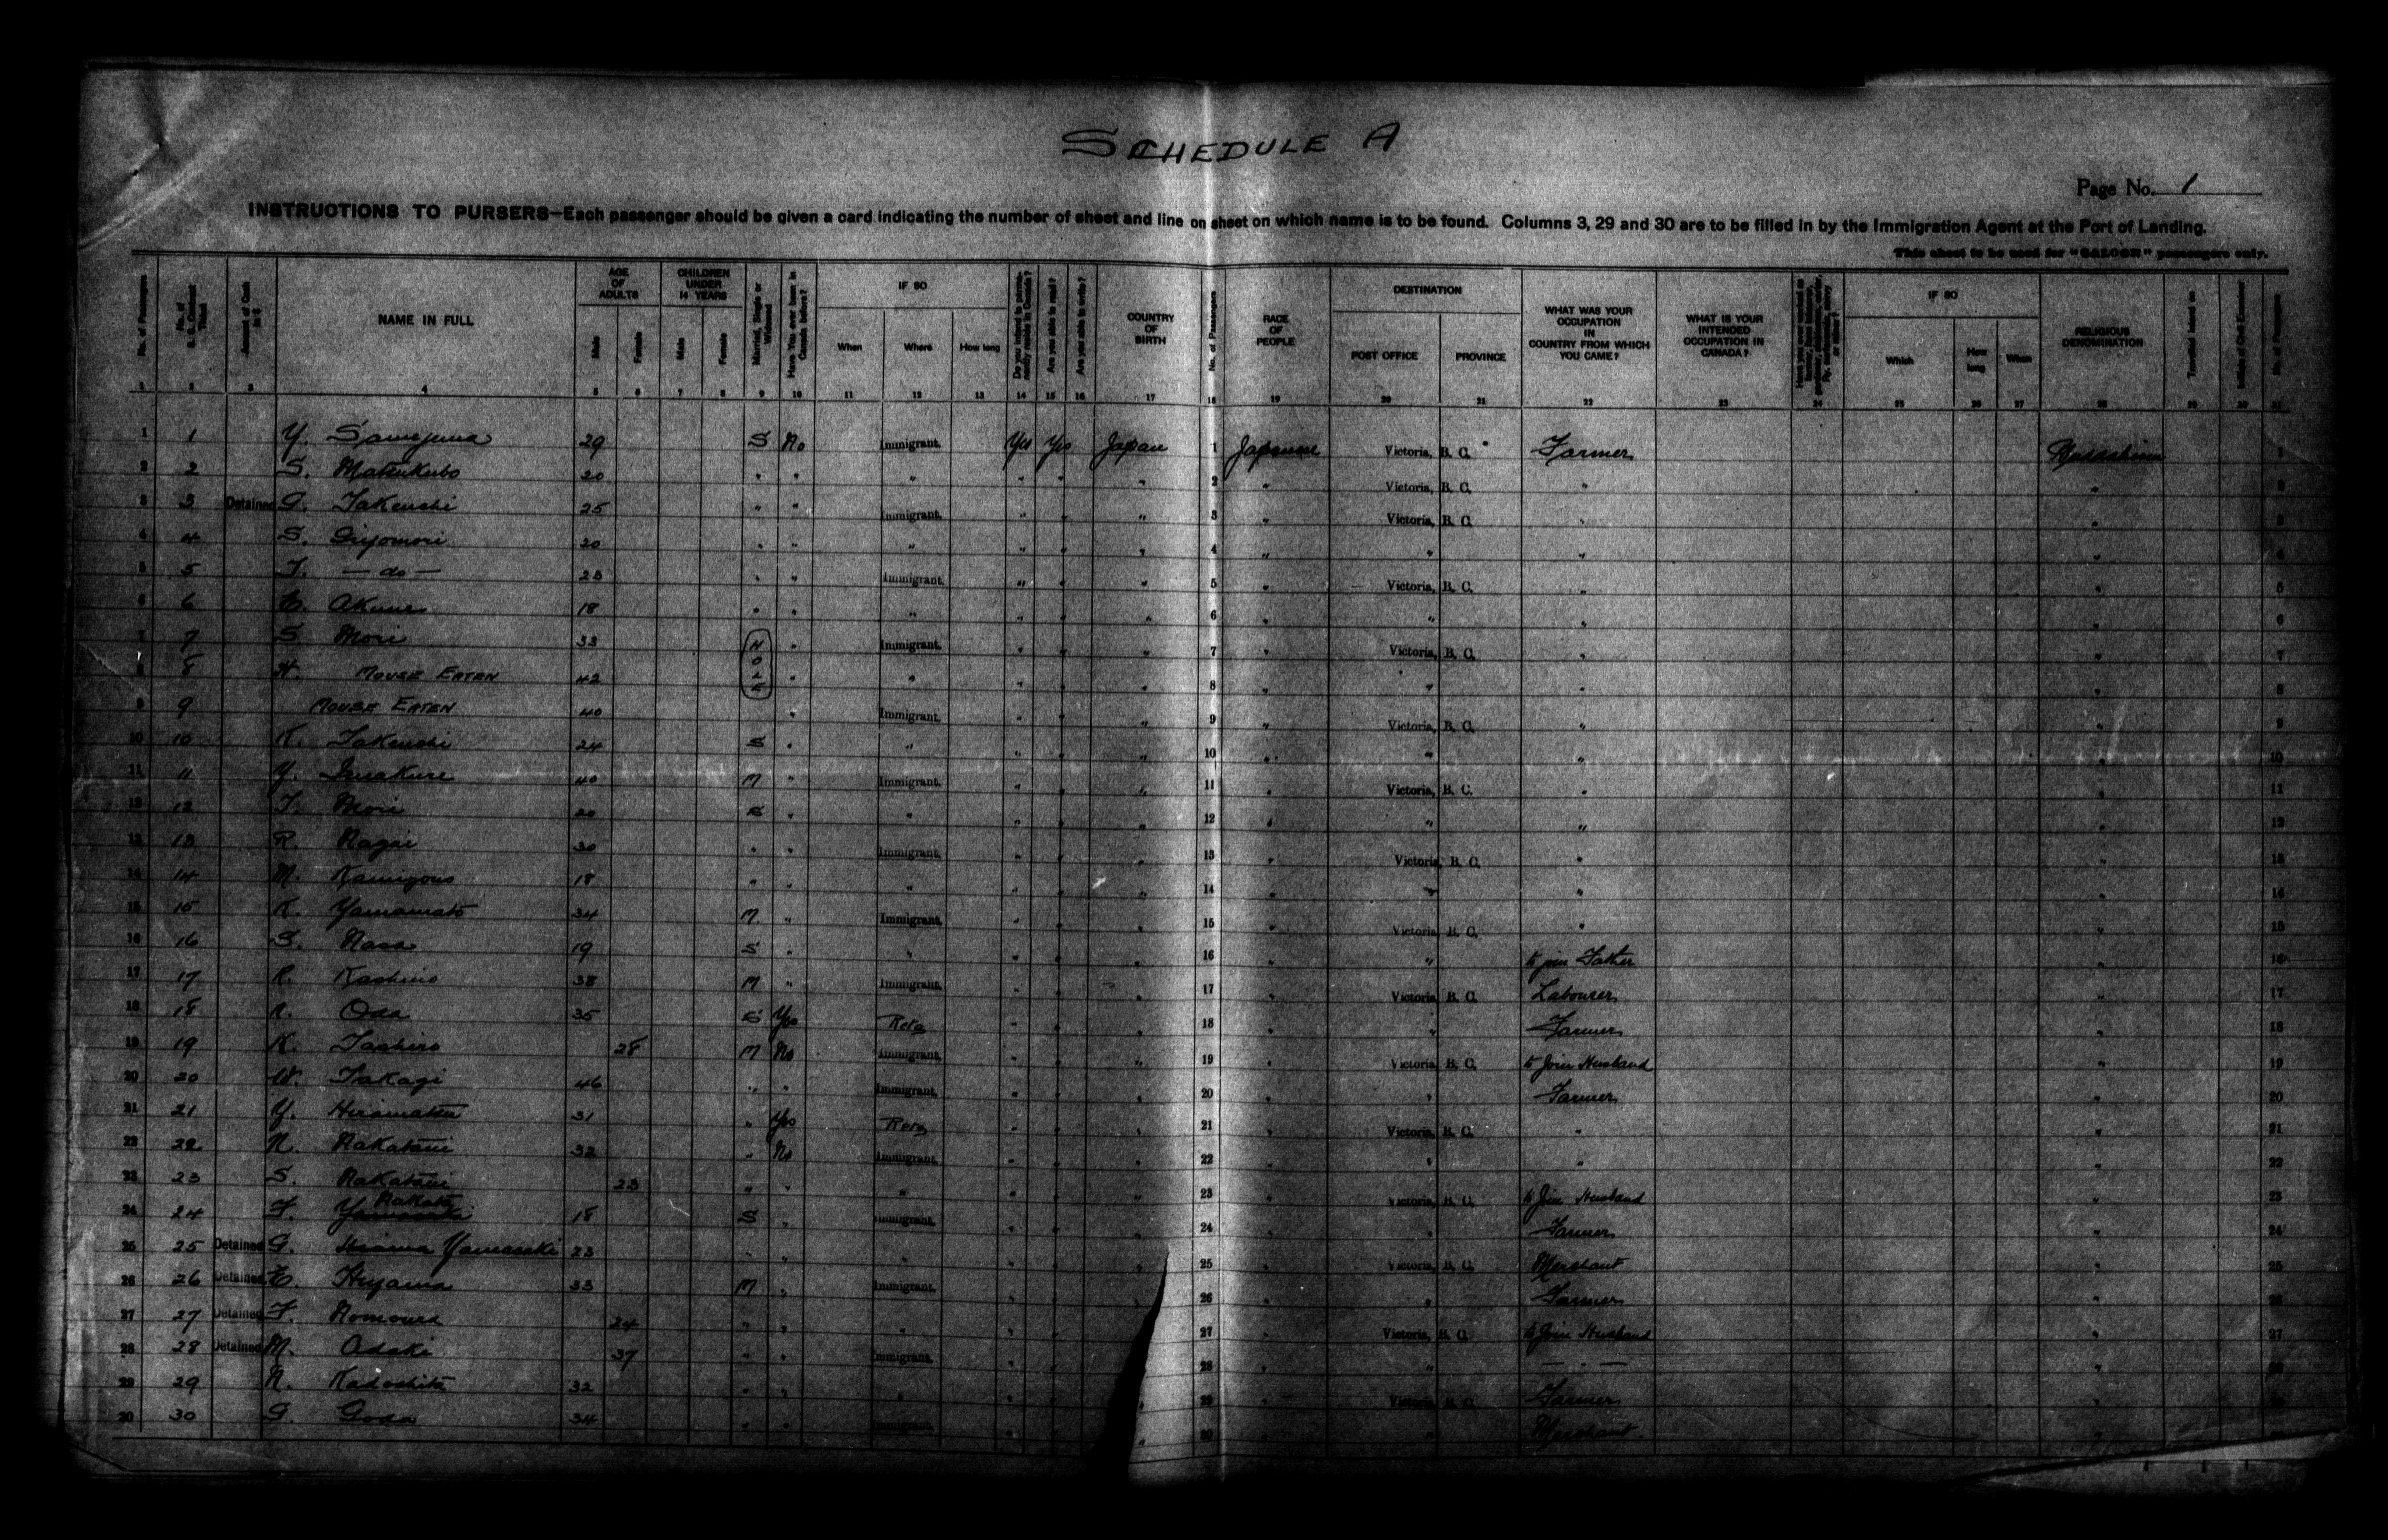 SCHEDULE A
Page No. 1
INSTRUCTIONS TO PURSERS—Each passenger should be given a card indicating the number of sheet and line on sheet on which name is to be found. Columns 3, 29 and 30 are to be filled in by the Immigration Agent at the Port of Landing.
This sheet to be used for "SALOON" passengers only.
No. of Passengers NAME IN FULL AGE OF ADULTS Male Female CHILDREN UNDER 14 YEARS Male Female Married, Single or Widowed Have You ever been in Canada before? IF SO When Where How long Do you intend to permanently reside in Canada? Are you able to read? Are you able to write? COUNTRY OF BIRTH No. of Passengers RACE OF PEOPLE DESTINATION POST OFFICE PROVINCE WHAT WAS YOUR OCCUPATION IN COUNTRY FROM WHICH YOU CAME? WHAT IS YOUR INTENDED OCCUPATION IN CANADA? IF SO Which When RELIGIOUS DENOMINATION Travelled Inland on No. of Passengers
1 2 3 4 5 6 7 8 9 10 11 12 13 14 15 16 17 18 19 20 21 22 23 24 25 26 27 28 29 30 31
1 1 Y. 29 S No Immigrant. Yes Yes Japan 1 Japanese Victoria, B. C. Farmer 1
2 2 S. Matsukubo 20 " " " " " " 2 " Victoria, B. C. " " 2
3 3 Detained G. Takeuchi 25 " " Immigrant. " " " 3 " Victoria, B. C. " " 3
4 4 S. 20 " " " " " " 4 " " " " 4
5 5 T. — do — 25 " " Immigrant. " " " 5 " Victoria, B. C. " " 5
6 6 Akune 18 " " " " " " 6 " " " " 6
7 7 S Mori 33 H " Immigrant. " " " 7 " Victoria, B. C. " " 7
8 8 H. MOUSE EATEN 42 O L E " " " " " 8 " " " " 8
9 9 MOUSE EATEN 40 " Immigrant. " " " 9 " Victoria, B. C. " " 9
10 10 K. Takeuchi 24 S " " " " " 10 " " " " 10
11 11 Y. 40 M " Immigrant. " " " 11 " Victoria, B. C. " " 11
12 12 T. Mori 20 S " " " " " 12 " " " " 12
13 13 R. Nagai 30 " " Immigrant. " " " 13 " Victoria, B. C. " " 13
14 14 M. 18 " " " " " " 14 " " " " 14
15 15 K. Yamamoto 34 M. " Immigrant. " " " 15 " Victoria, B. C. " " 15
16 16 S. 19 S " " " " " 16 " " to join Father " 16
17 17 38 M " Immigrant. " " " 17 " Victoria, B. C. Labourer " 17
18 18 Oda 35 S Yes Retg " " " 18 " " Farmer " 18
19 19 K. Tashiro 28 M No Immigrant. " " " 19 " Victoria, B. C. to Join Husband " 19
20 20 W. Takagi 46 " " Immigrant. " " " 20 " " Farmer " 20
21 21 Y. Hiramatsu 31 " Yes Retg " " " 21 " Victoria, B. C. " " 21
22 22 N. Nakatani 32 " No Immigrant. " " " 22 " " " " 22
23 23 S. Nakatani 23 " " " " " " 23 " Victoria, B. C. to Join Husband " 23
24 24 F. 18 S " Immigrant. " " " 24 " " Farmer " 24
25 25 Detained G. Yamasaki 23 " " " " " " 25 " Victoria, B. C. Merchant " 25
26 26 Detained 33 M " Immigrant. " " " 26 " " Farmer " 26
27 27 Detained F. Nomura 24 " " " " " 27 " Victoria, B. C. to Join Husband " 27
28 28 Detained M. Odaki 37 " " Immigrant. " " 28 " " — " — "
29 29 N. Kadoshita 32 " " " " " " 29 " Victoria, B. C. Farmer "
30 30 G. Goda 34 " " Immigrant. " " " 30 " " Merchant. "